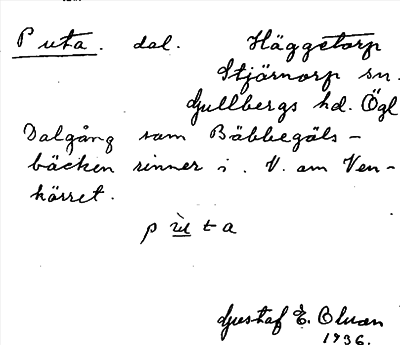 Puta. dal. Häggetorp
Stjärnorp sn.
Gullbergs hd. Ögl
Dalgång som Bäbbegöls-
bäcken rinner i. V. om Ven-
kärret.
p ù t a
Gustaf E. Oluan
1936.